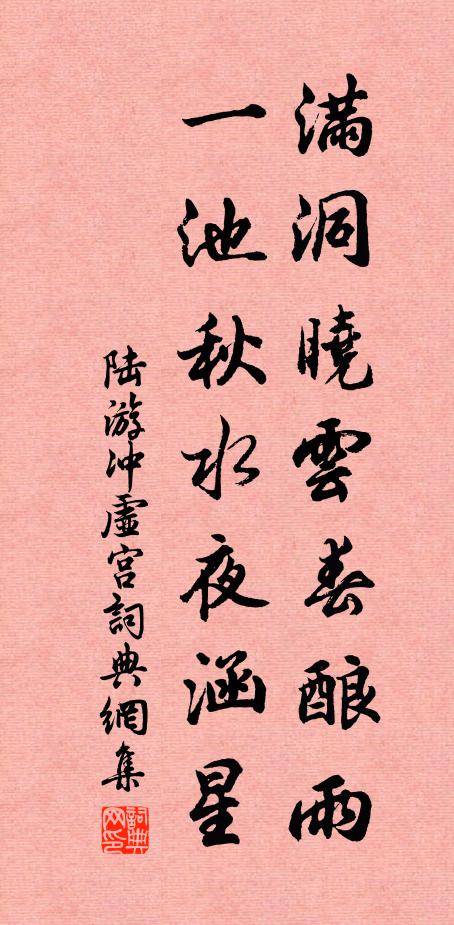 滿洞曉雲春酿雨
一池秋水夜涵星
陆游冲虛宫詞典網集
詞典网印